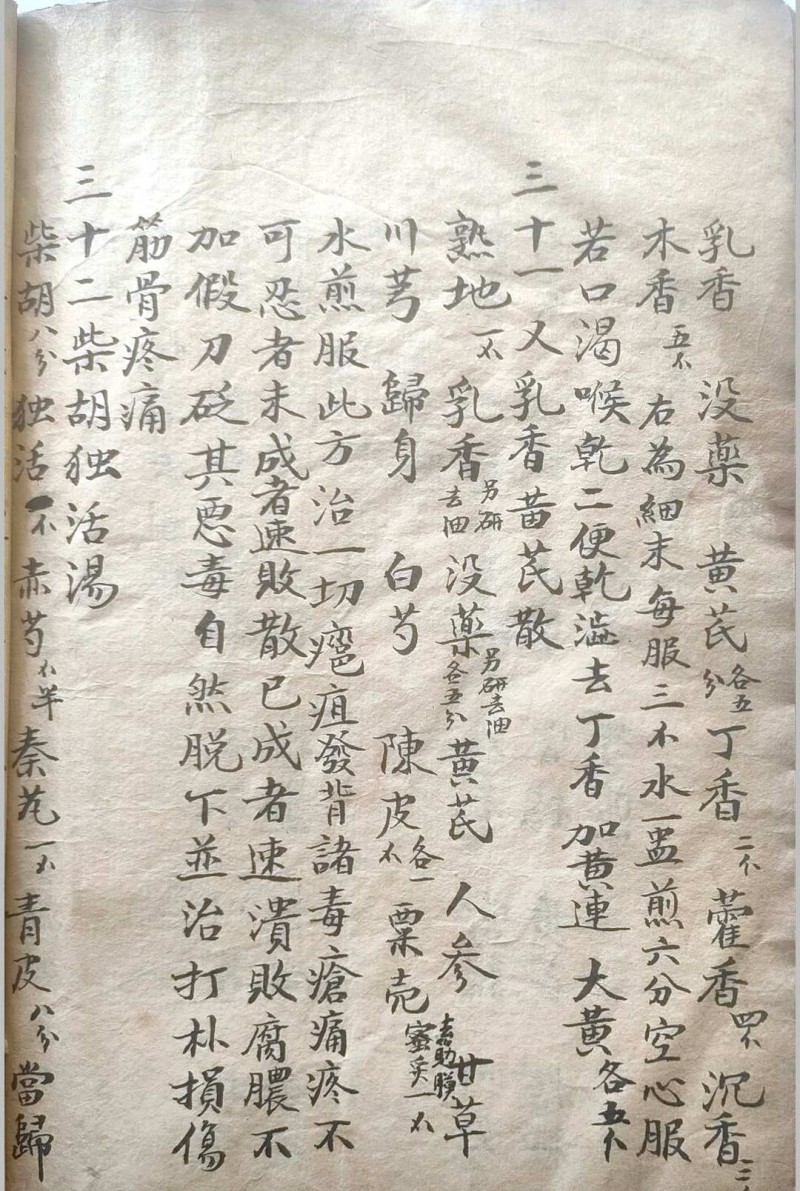 乳香 没藥 黄芪各五分丁香二个藿香四不沉香三
木香五不右為細末每服三不水一盅煎六分空心服
若口渴喉乾二便乾澁去丁香加黄連 大黄各五个
三十一又乳香黄芪散
熟地一不乳香另研去油没藥另研去油各五分黄芪 人參 甘草
川芎 歸身 白芍 陳皮各一不粟壳去觔膜蜜炙一不
水煎服此方治一切瘪疽發背諸毒瘡痛疼不
可忍者未成者速敗散已成者速潰敗腐膿不
加假刀砭其悪毒自然脱下並治打朴損傷
筋骨疼痛
三十二柴胡独活湯
柴胡八分独活一不赤芍不半秦艽一不青皮八分當歸